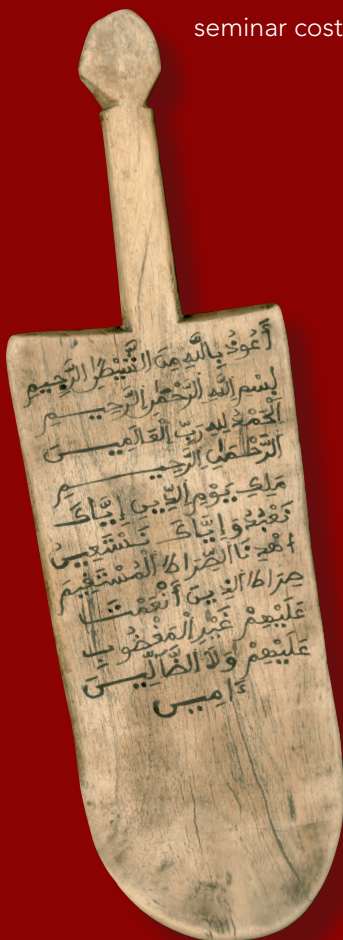 seminar cost
أَعُوذُ بِاللَّهِ مِنَ الشَّيْطَٰنِ الرَّجِيمِ
بِسْمِ اللَّهِ الرَّحْمَٰنِ الرَّحِيمِ
الْحَمْدُ لِلهِ رَبِّ الْعَالَمِينَ
الرَّحْمَٰنِ الرَّحِيمِ
مَلِكِ يَوْمِ الدِّينِ إِيَّاكَ
نَعْبُدُ وَإِيَّاكَ نَسْتَعِينُ
اهْدِنَا الصِّرَاطَ الْمُسْتَقِيمَ
صِرَاطَ الَّذِينَ أَنْعَمْتَ
عَلَيْهِمْ غَيْرِ الْمَغْضُوبِ
عَلَيْهِمْ وَلَا الضَّالِّينَ
ءَامِين